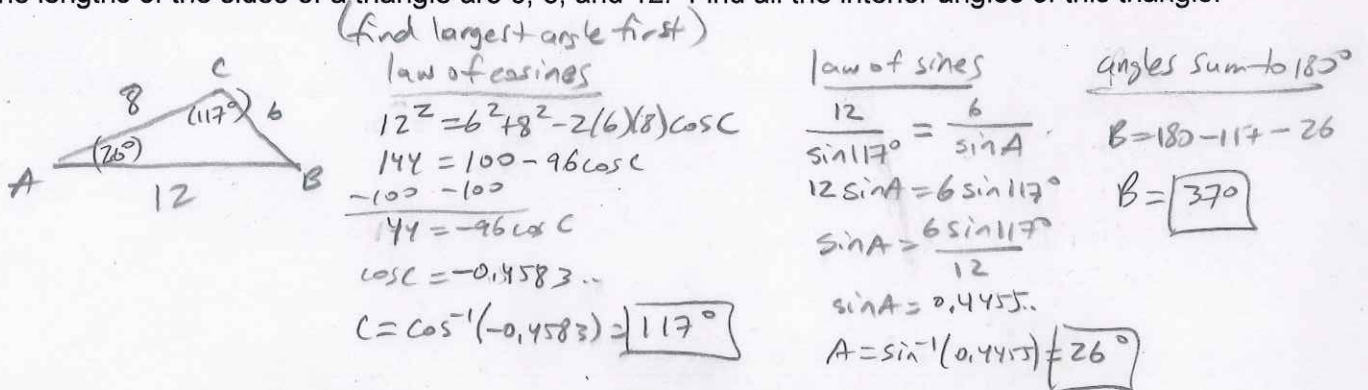 The lengths of the sides of a triangle are 6, 8, and 12. Find all the interior angles of this triangle.
(find largest angle first)
C
8
(117°)
6
(26°)
A
12
B
law of cosines
12² = 6² + 8² - 2(6)(8)cosC
144 = 100 - 96cosC
-100 -100
44 = -96 cos C
cosC = -0.4583..
C = cos⁻¹(-0.4583) = 117°
law of sines
12/sin117° = 6/sinA
12 sinA = 6 sin117°
sinA = 6sin117°/12
sinA = 0.4455..
A = sin⁻¹(0.4455) = 26°
angles sum to 180°
B = 180 - 117 - 26
B = 37°